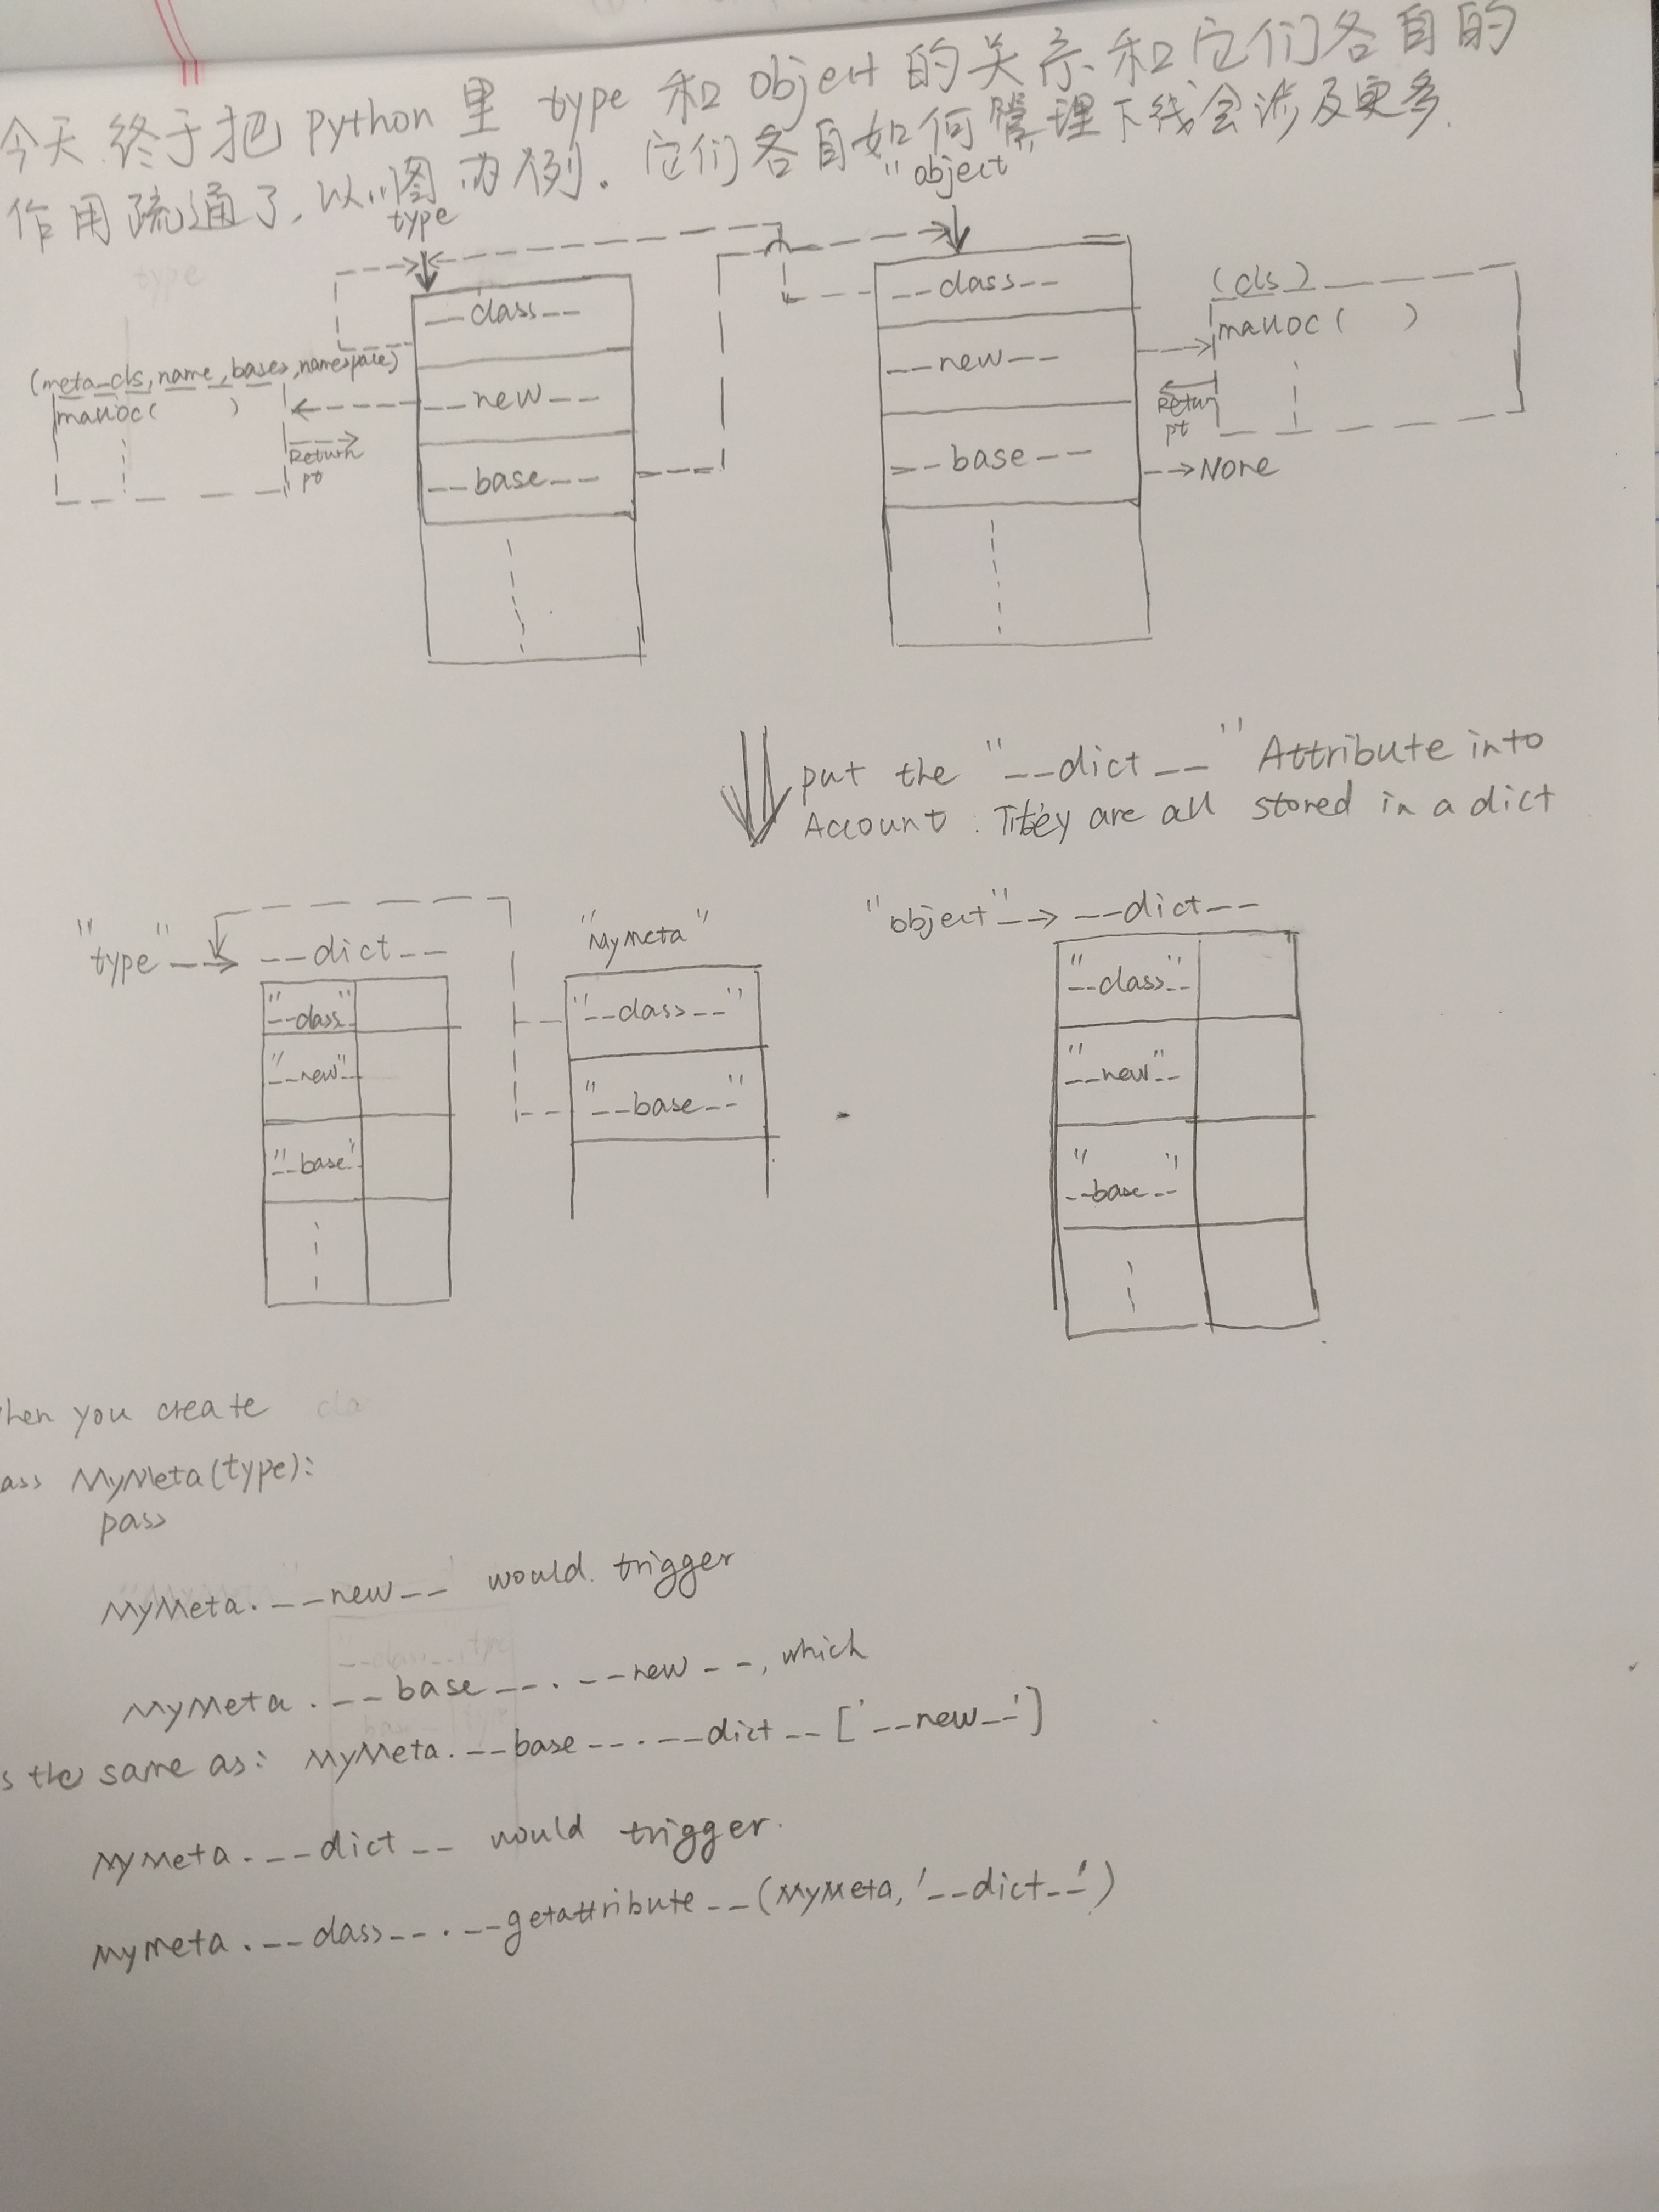 今天终于把 python 里 type 和 object 的关系和它们各自的
作用疏通了, 以图为例. 它们各自如何管理下线会涉及更多.
"type"
"object"
__class__
__new__
__base__
(meta_cls, name, bases, namespace)
malloc( )
Return
pt
__class__
__new__
__base__
(cls)
malloc( )
Return
pt
None
put the "__dict__" Attribute into
Account. They are all stored in a dict
"type" __dict__
"__class__"
"__new__"
"__base__"
"MyMeta"
"__class__"
"__base__"
"object" __dict__
"__class__"
"__new__"
"__base__"
hen you create
ass MyMeta(type):
pass
MyMeta.__new__ would trigger
MyMeta.__base__.__new__, which
s the same as: MyMeta.__base__.__dict__['__new__']
MyMeta.__dict__ would trigger.
MyMeta.__class__.__getattribute__(MyMeta, '__dict__')